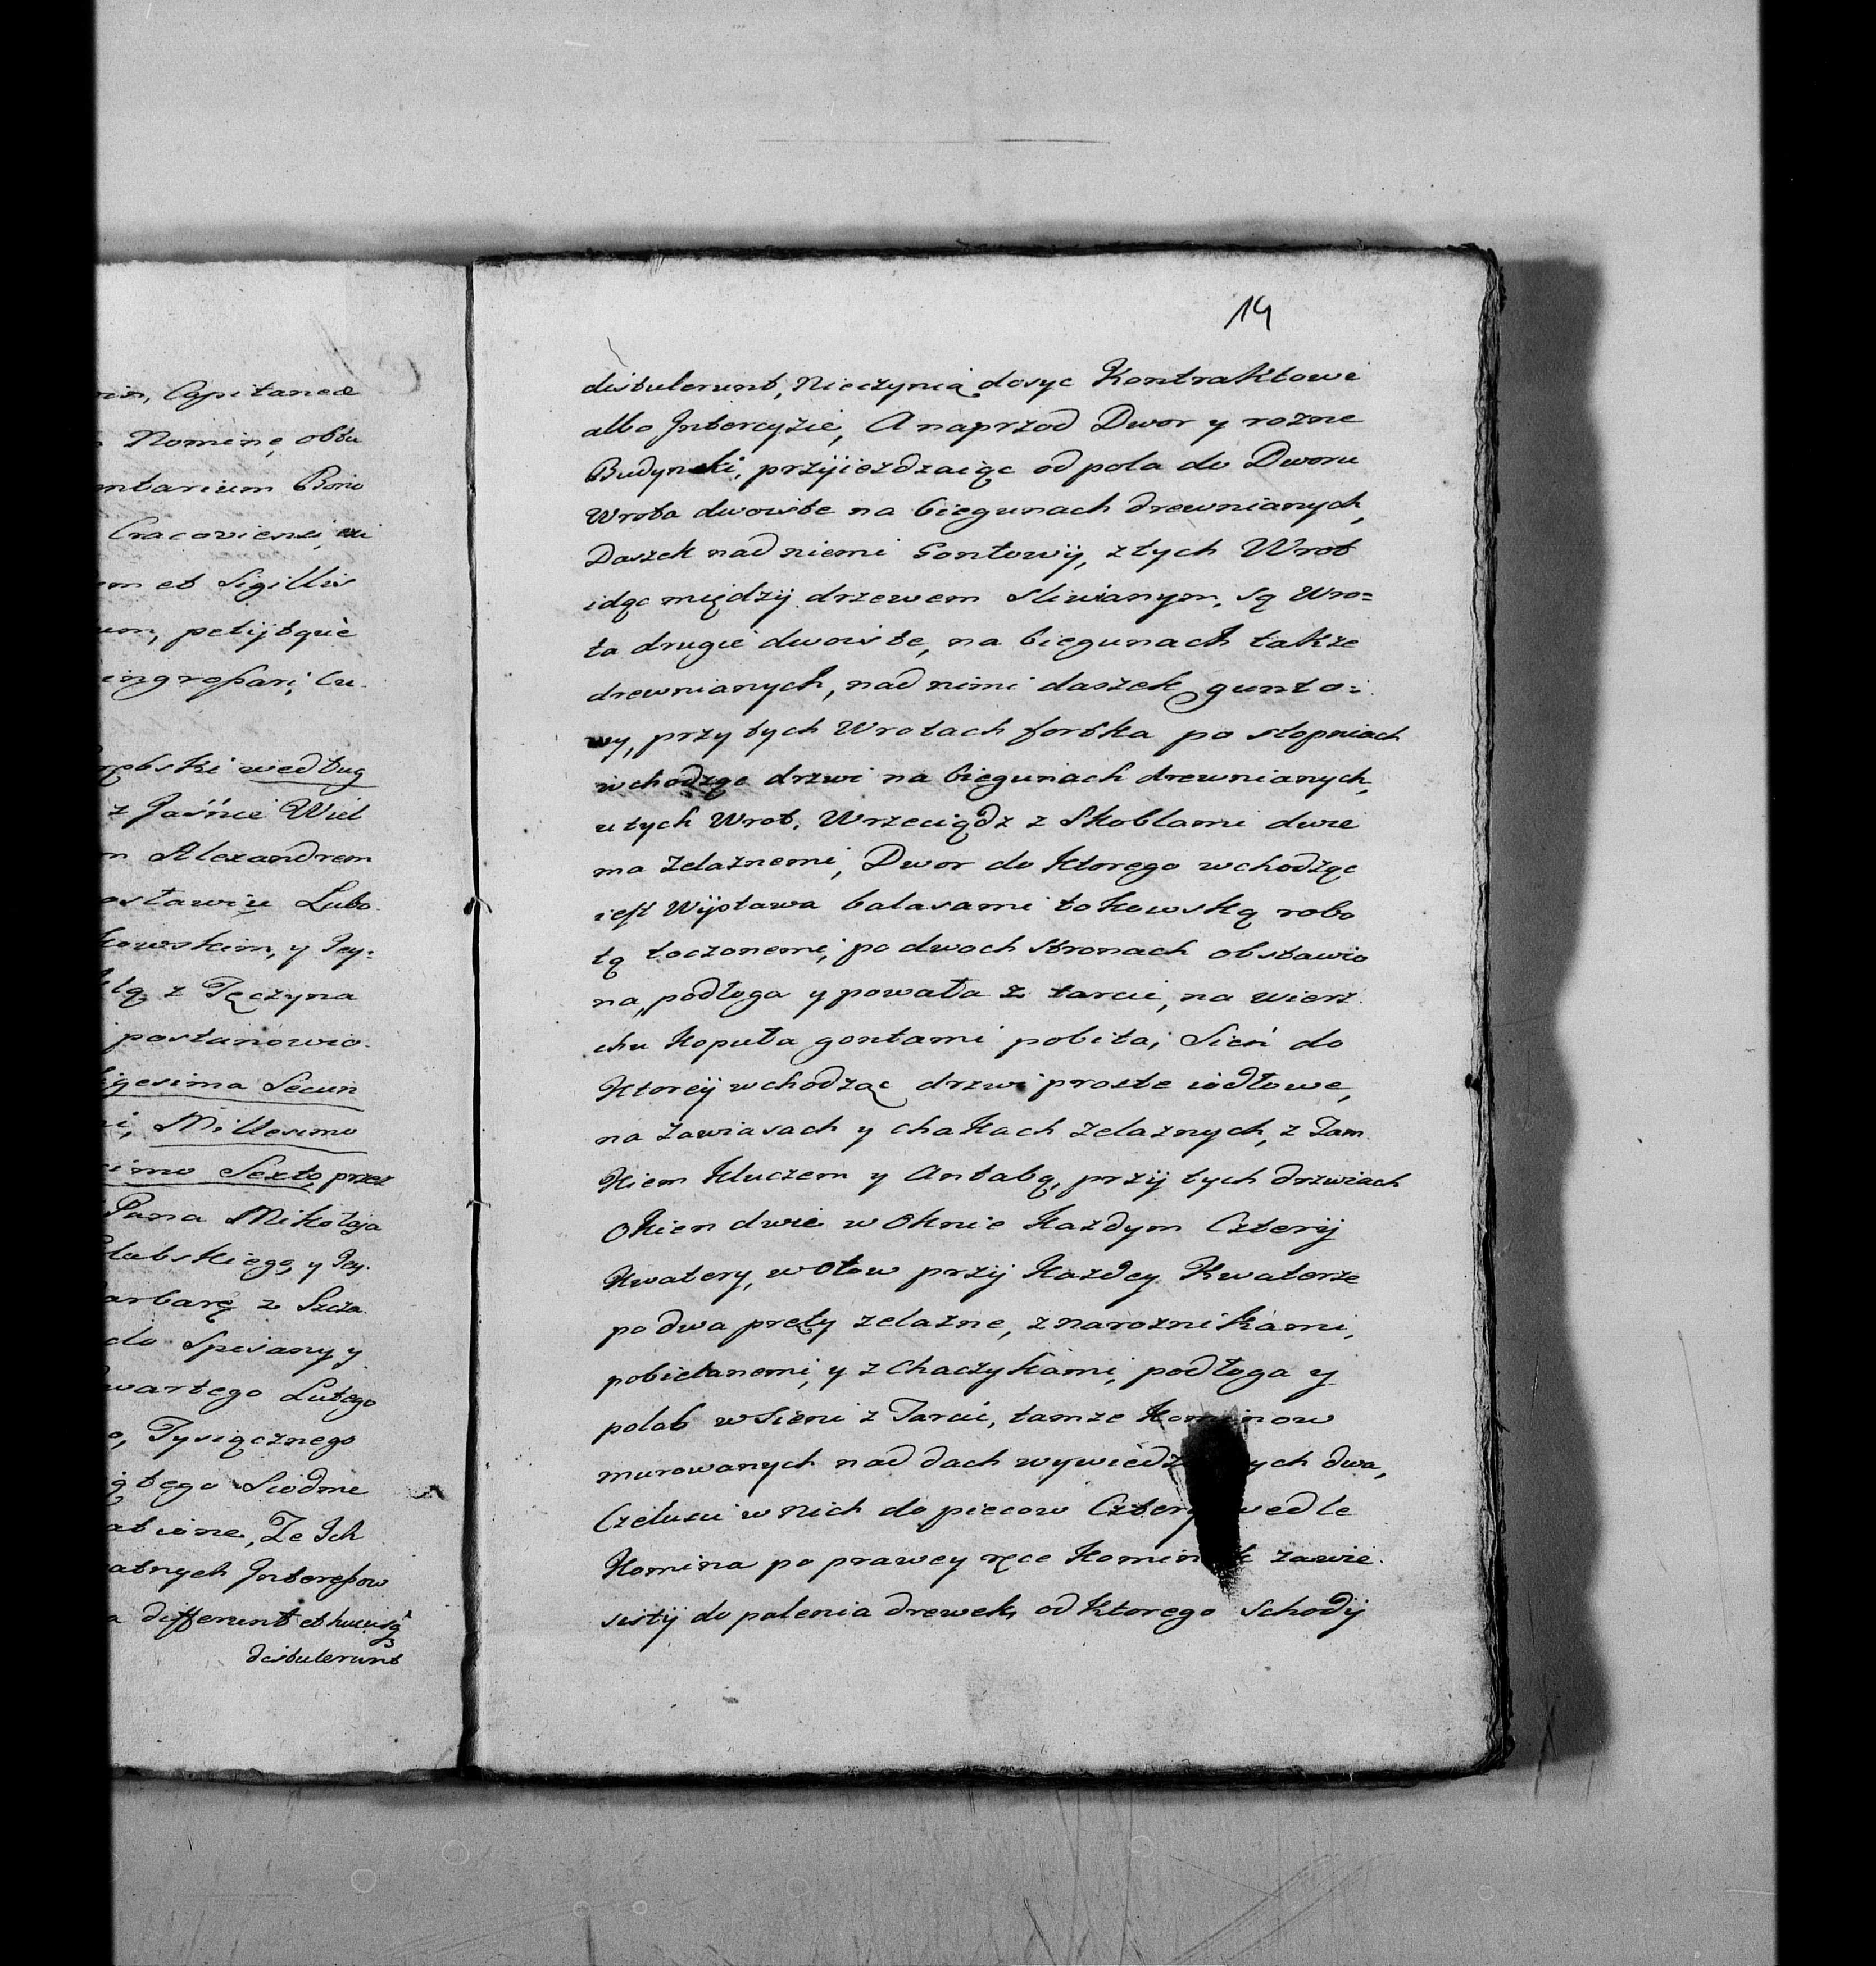 min, Capitaneæ
Nomine, obtu
ntarium Bono
Cracoviensi, exi
em et Sigillis
um, petijtque
ingroſsari, Cu.
rębski według
z Jaśnie Wiel
m Alexandrem
ostawiu Lubo.
kowskim, y Jey:
z Tęczyna
postanowio.
igesima Secun
i, Millesimo
imo Sexto, przez
Pana Mikołaja
labskiego, y Jey.
arbarę z Szcza.
do Spisany y
wartego Lutego
o, Tysiącznego
ątego Siodme
Ze Ich
atnych Jntereſsow
a differunt et hucusq3
distulerunt
14
distulerunt, Nieczynią dosyc Kontraktowi
albo Jntercyzie, A naprzod Dwor y rozne
Budynki, przijiezdzaiąc od pola do Dworu
Wrota dwoiste na biegunach drewnianych,
Daszek nad niemi Gontowij, z tych Wrot
idąc międzij drzewem Sliwianym, są Wro=
ta drugie dwoiste, na biegunach takze
drewnianych, nad nimi daszek gunto=
wy, przy tych Wrotach fortka po stopniach
wchodząc drzwi na biegunach drewnianych,
u tych Wrot, Wrzeciądz z Skoblami dwie
ma Zelaznemi, Dwor do Ktorego wchodząc
iest Wystawa balasami tokowską robo
tą toczonemi, po dwoch Stronach obstawio
na, podłoga y powała z tarcic, na wierz
chu Koputa gontami pobita; Sień do
Ktoreij wchodząc drzwi proste iodłowe,
na Zawiasach y chakach Zelaznych, z Zam
Kiem Kluczem y Antabą, przij tych drzwiach
Okien dwie w Oknie Kazdym Czterij
Kwatery, w Ołow przij Kazdey Kwaterze
po dwa pręty zelazne, z naroznikami,
pobielanemi, y z Chaczykami, podłoga y
polab w Sieni z Tarcic, tamze Kominow
murowanych nad dach wywiedz ych dwa,
Czelusci w Nich do piecow Cztery wedle
Komina po prawey ręce Kominek zawie.
sistij do palenia drewek, od Ktorego Schodij